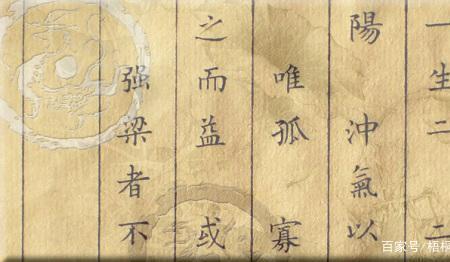 一生二 二
陽 沖氣以
唯孤 寡
之而益 或
强梁者不
百家号/梧桐